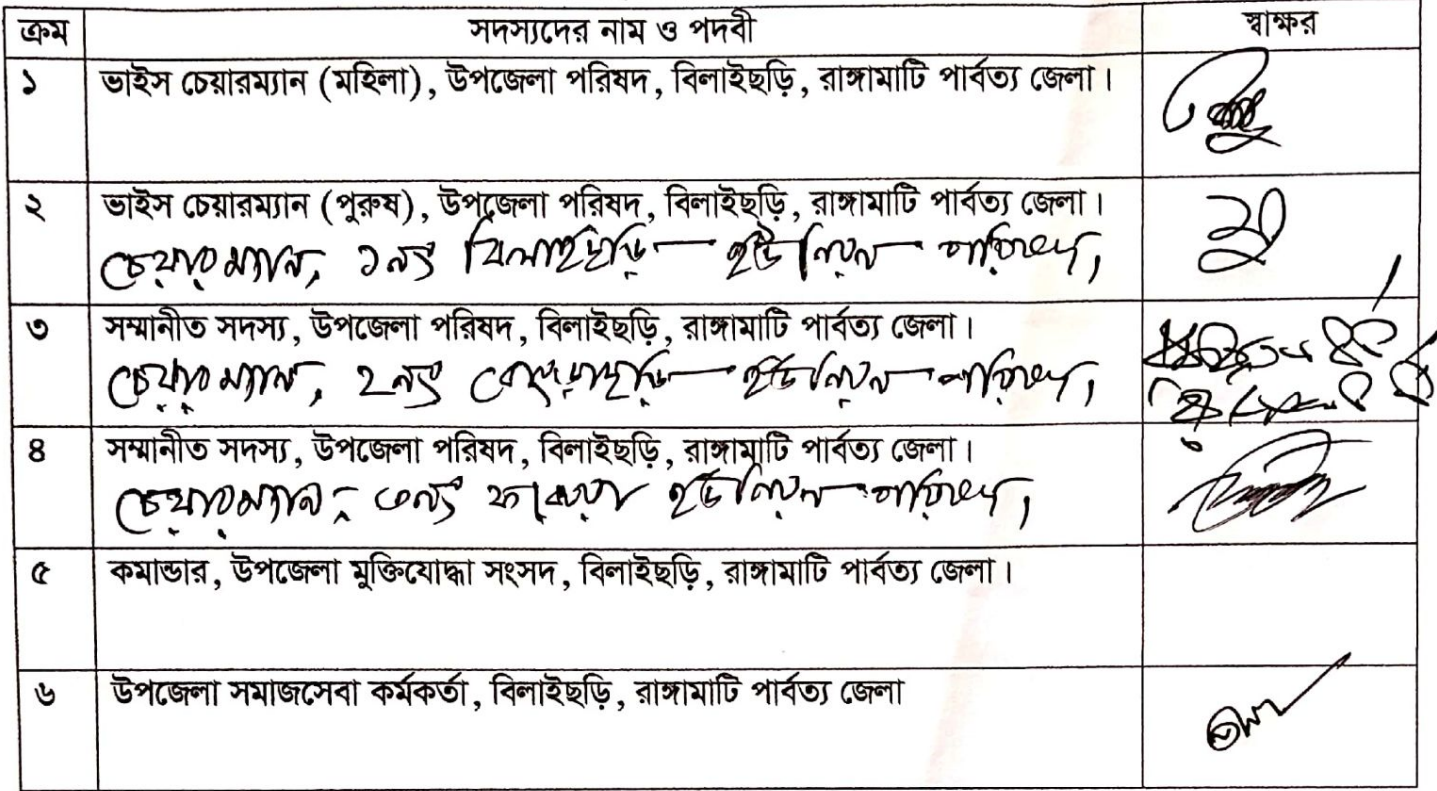 ক্রম সদস্যদের নাম ও পদবী স্বাক্ষর
১ ভাইস চেয়ারম্যান (মহিলা), উপজেলা পরিষদ, বিলাইছড়ি, রাঙ্গামাটি পার্বত্য জেলা।
২ ভাইস চেয়ারম্যান (পুরুষ), উপজেলা পরিষদ, বিলাইছড়ি, রাঙ্গামাটি পার্বত্য জেলা।
চেয়ারম্যান, ১নং বিলাইছড়ি ইউনিয়ন পরিষদ,
৩ সম্মানীত সদস্য, উপজেলা পরিষদ, বিলাইছড়ি, রাঙ্গামাটি পার্বত্য জেলা।
চেয়ারম্যান, ২নং কেংড়াছড়ি ইউনিয়ন পরিষদ,
৪ সম্মানীত সদস্য, উপজেলা পরিষদ, বিলাইছড়ি, রাঙ্গামাটি পার্বত্য জেলা।
চেয়ারম্যান, ৩নং ফারুয়া ইউনিয়ন পরিষদ,
৫ কমান্ডার, উপজেলা মুক্তিযোদ্ধা সংসদ, বিলাইছড়ি, রাঙ্গামাটি পার্বত্য জেলা।
৬ উপজেলা সমাজসেবা কর্মকর্তা, বিলাইছড়ি, রাঙ্গামাটি পার্বত্য জেলা